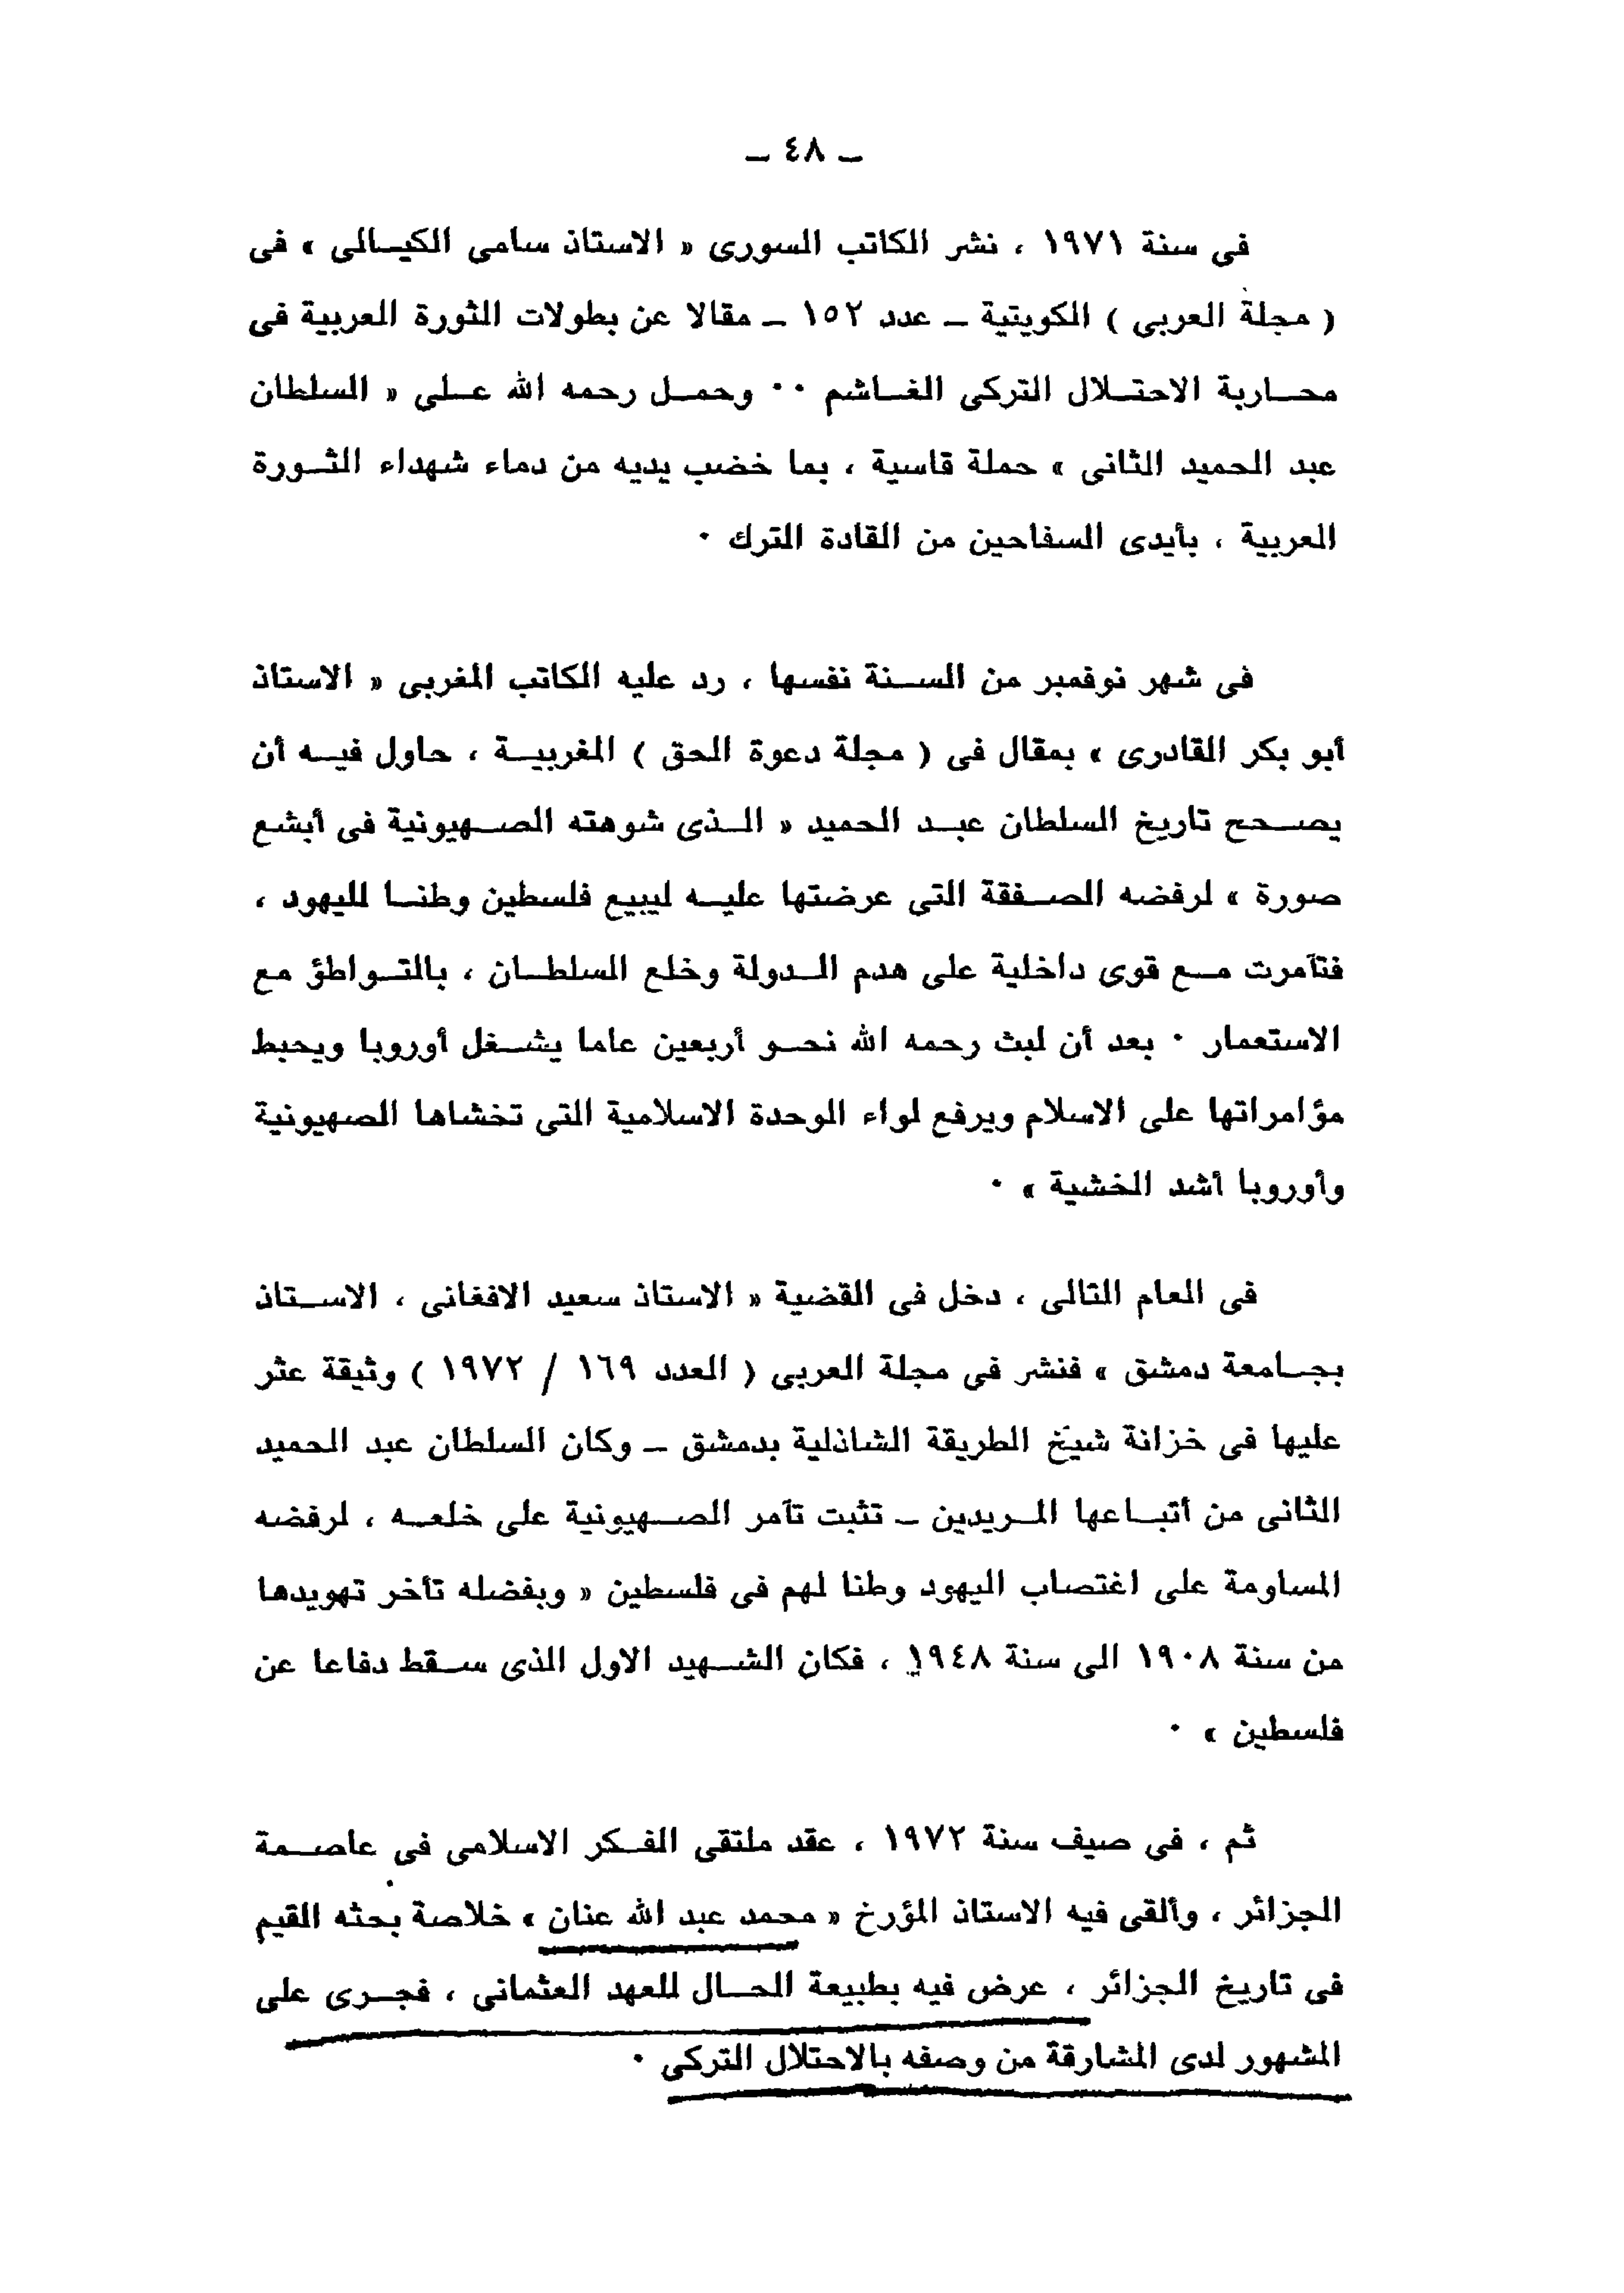 ـ ٤٨ ـ
فى سنة ١٩٧١ ، نشر الكاتب السورى « الاستاذ سامى الكيـالى » فى
( مجلة العربى ) الكويتية ـ عدد ١٥٢ ـ مقالا عن بطولات الثورة العربية فى
محـاربة الاحتـلال التركى الغـاشم ٠٠ وحمـل رحمه الله عـلى « السلطان
عبد الحميد الثانى » حملة قاسية ، بما خضب يديه من دماء شهداء الثـورة
العربية ، بأيدى السفاحين من القادة الترك ٠
فى شهر نوقمبر من السـنة نفسها ، رد عليه الكاتب المغربى « الاستاذ
أبو بكر القادرى » بمقال فى ( مجلة دعوة الحق ) المغربيـة ، حاول فيـه أن
يصـحح تاريخ السلطان عبـد الحميد « الـذى شوهته الصـهيونية فى أبشع
صورة » لرفضه الصـفقة التى عرضتها عليـه ليبيع فلسطين وطنـا لليهود ،
فتآمرت مـع قوى داخلية على هدم الـدولة وخلع السلطـان ، بالتـواطؤ مع
الاستعمار ٠ بعد أن لبث رحمه الله نحـو أربعين عاما يشـغل أوروبا ويحبط
مؤامراتها على الاسلام ويرفع لواء الوحدة الاسلامية التى تخشاها الصهيونية
وأوروبا أشد الخشية » ٠
فى العام التالى ، دخل فى القضية « الاستاذ سعيد الافغانى ، الاسـتاذ
بجـامعة دمشق » فنشر فى مجلة العربى ( العدد ١٦٩ / ١٩٧٢ ) وثيقة عثر
عليها فى خزانة شيخ الطريقة الشاذلية بدمشق ـ وكان السلطان عبد الحميد
الثانى من أتبـاعها المـريدين ـ تثبت تآمر الصـهيونية على خلعـه ، لرفضه
المساومة على اغتصاب اليهود وطنا لهم فى فلسطين « وبفضله تأخر تهويدها
من سنة ١٩٠٨ الى سنة ١٩٤٨ ، فكان الشـهيد الاول الذى سـقط دفاعا عن
فلسطين » ٠
ثم ، فى صيف سنة ١٩٧٢ ، عقد ملتقى الفـكر الاسلامى فى عاصـمة
الجزائر ، وألقى فيه الاستاذ المؤرخ « محمد عبد الله عنان » خلاصة بحثه القيم
فى تاريخ الجزائر ، عرض فيه بطبيعة الحـال للعهد العثمانى ، فجـرى على
المشهور لدى المشارقة من وصفه بالاحتلال التركى ٠